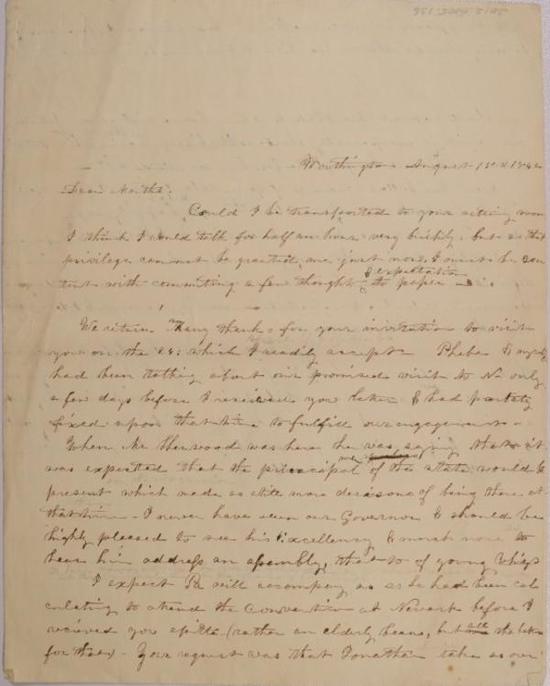 Worthington August 1842
Dear Martha:
Could I be transported to your sitting room
I think I could talk for half an hour very briskly, but as that
privilege cannot be granted me just now I must be con
tent with committing a few thoughts & expectations to paper
We return many thanks for your invitation to visit
you on the which I readily accept. Phebe & myself
had been talking about our promised visit to N only
a few days before I received your letter & had partly
fixed upon that time to fulfill our engagements
When Mr Sherwood was here he was saying that it
was expected that the principal of the state would be
present which made us still more desirous of being there at
that time. I never have seen our Governor & should be
highly pleased to see his Excellency & much more to
hear him address an assembly, that to of young Whigs
I expect Pa will accompany us as he had been cal
culating to attend the Convention at Newark before I
recieved your epistle (rather an elderly beau, but the better
for that) Your request was that Jonathan take us over